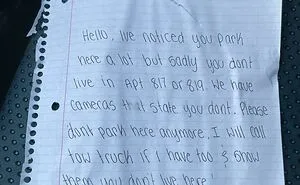 Hello, Ive noticed you park
here a lot but sadly you dont
live in Apt 817 or 819. We have
cameras that state you dont. Please
dont park here anymore. I will call
tow truck if I have too & show
them you don't live here!